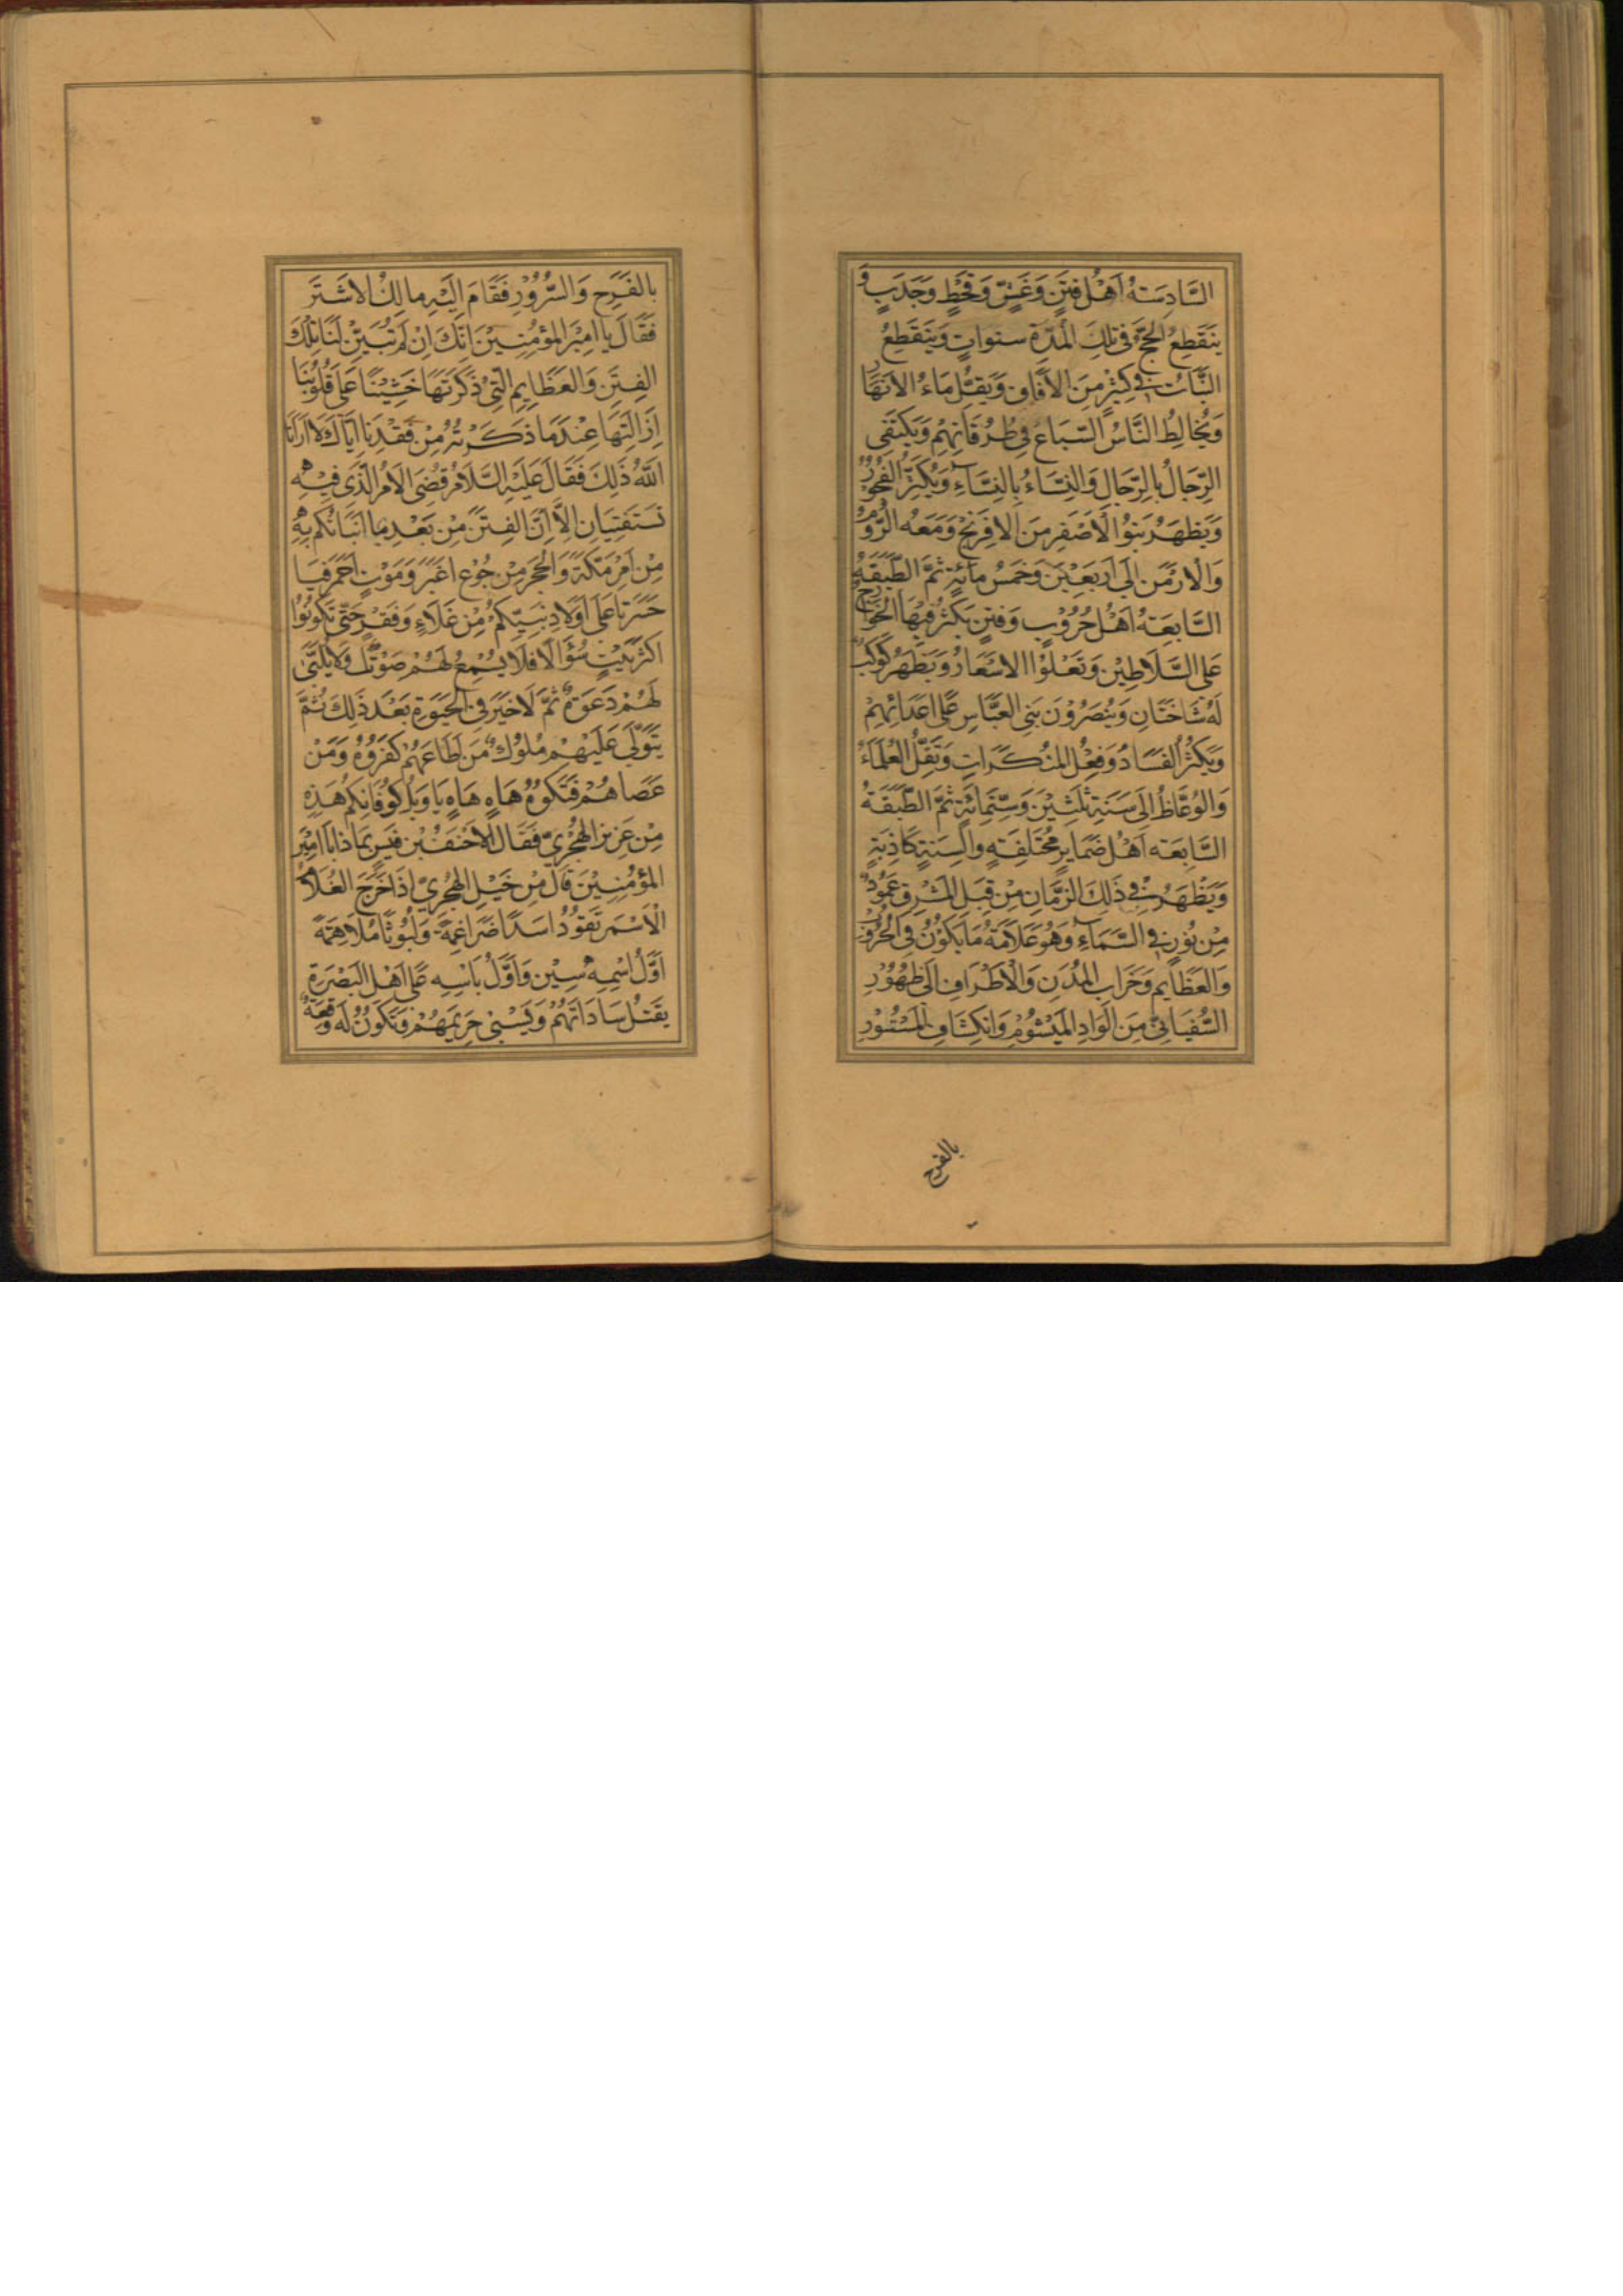 السَّادِسَتهُ اَهْلُ فِتَنٍ وَغَشٍّ وَقَحْطٍ وَجَدَبٍ وَ
يَنقَطِعُ الحَجّ فى تلِكَ المُدّة سنوات وَيَنقَطِعُ
النَّبَاتُ فى كَثيْرٍ مِنَ الاَفَاق وَيَقِلُّ مَاءُ الاَنهَار
وَيُخالِطُ النَّاسُ السّبَاعَ فِى طُرُقَاتِهِم وَيَكتَفِى
الرِّجَالُ بِالرِّجَالِ وَالنِسَّاءُ بِالنِسَّاءِ وَيُكثِرُ الفُجُوْرُ
وَيَظهَرُ بَنُوا لاَصْفَرِ مِنَ الافِرَنْجِ وَمَعَهُ الرُّوْمُ
وَالْارْمَن اِلَى اَربَعِيْنَ وَخَمسُ مائَةٍ ثمَّ الطَّبَقَةُ
السَّابِعَتهُ اَهْلُ حُرُوْبٍ وَفِتَنٍ يَكثرُ فِيْهَا الخَوَارجُ
عَلَى السَّلَاطِيْن وَتَعْلُوْا الاسْعَارُ وَيَظْهَرُ كَوكَبٌ
لَهُ شَاخَتَانِ وَيُنصَرُوْنَ بَنِى العَبَّاسِ عَلَى اعَدَائِهِمْ
وَيَكثرُ الفَسَادُ وَفِعْلُ المنْكَرَاتِ وَتَقِلُّ العُلَمَاءُ
وَالوُعَّاظُ اِلَى سَنَةِ ثَلٰثيْنَ وَسِتّمِائَةٍ ثمَّ الطَّبَقَةُ
السَّابِعَته اَهْلُ ضَمَايرٍ مُختَلِفَتهٍ واَلسِنَةٍ كَاذِبَةٍ
وَيَظْهَرُ فِى ذَلِكَ الزَّمَانِ مِنْ قِبَلِ المَشْرِقِ عَمُوْدٌ
مِنْ نُوْرٍ فى السَّمَاءِ وَهُوَ عَلاَمَةُ مَا يَكُوْنُ فِى الحُرُوْبِ
وَالعَظَايِم وَخَرَابِ المُدُنِ وَالْاَطْرَافِ اِلَى ظُهُوْرِ
السُّفيَانِىّ مِنَ الوَادِ المَيْشُوْمِ وَانكِشَافِ المَسْتُوْرِ
بالفرح
بِالفَرَحِ وَالسُّرُوْرِ فَقَامَ اِلَيْهِ مالِكُ الاشْتَرَ
فَقَالَ يا امِيْرَ المؤمِنِيْنَ اِنَّكَ اِنْ لَم تُبَيِّنْ لَنَا تِلْكَ
الفِتَن وَالعَظَايِمِ الّتِىْ ذَكَرْتَهَا خَشِيْنَا عَلىَ قُلُوْبِنَا
اِزَالَتِهَا عِنْدَ مَا ذَكَرْتهُ مِنْ فَقْدِنَا اِيّاكَ لاَ ارَانَا
اللهُ ذَلِكَ فَقَالَ عَلَيْهِ السَّلاَمُ قُضِىَ الاَمْرُ الَّذِى فِيْهِ
تَستَفتِيَانِ اِلاَّ اِنَّ الفِتَنَ مِنْ بَعْدِ مَا انبَأتُكُم بِهِ
مِنْ اَمْرِ مَكّةَ وَالحَجَر مِنْ جُوْعٍ اغبَرٍ وَمَوْتٍ اَحْمَر فَيَا
حَسْرَتَا عَلىَ اَوْلاَدِ نَبِيّكمُ مِنْ غَلَاءٍ وَفَقْرٍ حَتّى تَكُونُوْا
اَكثَرَ بَيْتٍ سُؤَالاً فَلَا يُسْمِعُ لَهُمْ صَوْتٌ وَلَا يُلَبَّى
لَهُمْ دَعوَةٌ ثمَّ لَا خَيْرَ فِى الحَيٰوةِ بَعْدَ ذَلِكَ ثُمَّ
يَتَوَلّى عَلَيْهِمْ مُلُوْك مَن اَطَاعَهُمْ كَفَرُوْهُ وَمَنْ
عَصَاهُمْ فَتَكُوْهُ هَاهٍ هَاهٍ يَا وَيْلَ كُوْفَانِكُم هَذِهِ
مِنْ عَزِيزِ الهَجْرِىّ فَقَالَ الاَحْنَفُ بْن قَيسٍ بمَا ذا يَا اَمِيْرَ
المؤمِنِيْنَ قَالَ مِنْ خَيْلِ الهَجْرِىْ اِذَا خَرَجَ الغُلاَمُ
الْاَسْمَر تَقُوْدُ اسَدًا ضَرَاغِمَةً وَلُيُوثًا مُلاَهِمَةً
اَوَّلُ اِسْمِهِ سِيْن وَاَوَّلُ بَاسِهِ عَلَى اَهْلِ البَصْرَةِ
يَقتُلُ سَادَاتَهُمْ وَيَسْبِى حَرِيمَهُمْ وَتَكُوْنُ لَه وَقعَةٌ